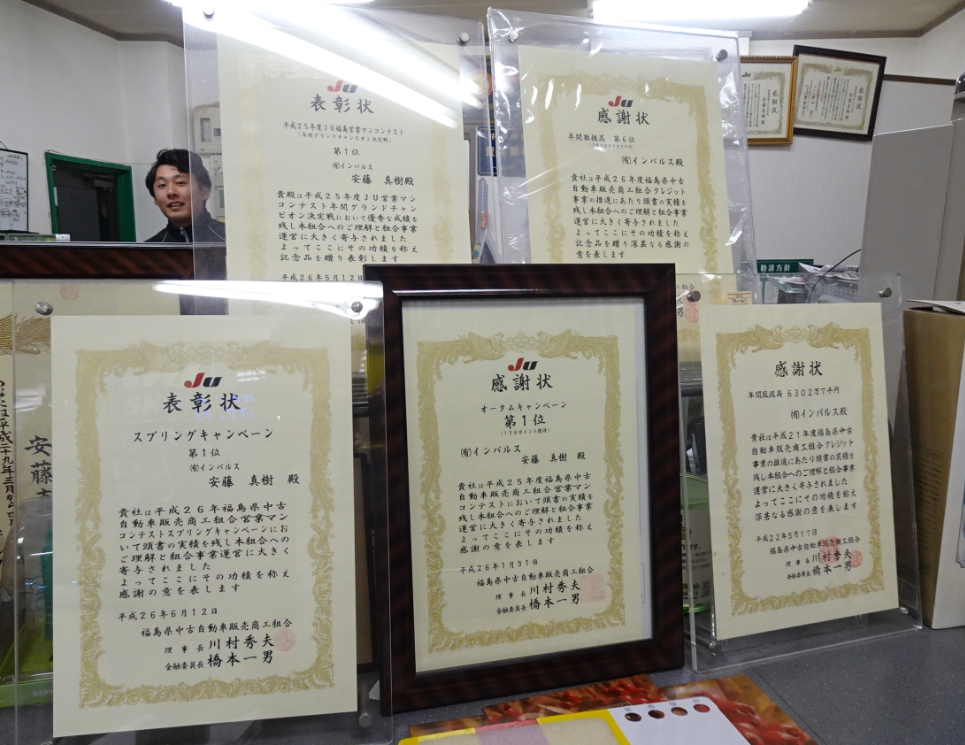 JU
表彰状
平成25年度JU福島営業マンコンテスト
「年間グランドチャンピオン決定戦」
第1位
㈲インパルス
安藤 真樹殿
貴殿は平成25年度JU営業マン
コンテスト年間グランドチャン
ピオン決定戦において優秀な成績を
残し本組合へのご理解と組合事業
運営に大きく寄与されました
よってここにその功績を称え
記念品を贈り表彰します
平成26年5月12
JU
感謝状
年間取扱高 第6位
㈲インパルス殿
貴社は平成26年度福島県中古
自動車販売商工組合クレジット
事業の推進にあたり頭書の実績を
残し本組合へのご理解と組合事業
運営に大きく寄与されました
よってここにその功績を称え
記念品を贈り深甚なる感謝
の意を表します
感謝状
感謝状
勤課方針
安藤
平成二十九年三月
JU
表彰状
スプリングキャンペーン
第1位
㈲インパルス
安藤 真樹 殿
貴社は平成26年福島県中古
自動車販売商工組合営業マン
コンテストスプリングキャンペーンにお
いて頭書の実績を残し本組合への
ご理解と組合事業運営に大きく
寄与されました
よってここにその功績を称え
感謝の意を表します
平成26年6月12日
福島県中古自動車販売商工組合
理事長 川村秀夫
金融委員長 橋本一男
JU
感謝状
オータムキャンペーン
第1位
㈲インパルス
安藤 真樹 殿
貴社は平成25年度福島県中古
自動車販売商工組合営業マン
コンテストにおいて頭書の実績を
残し本組合へのご理解と組合事業
運営に大きく寄与されました
よってここにその功績を称え
感謝の意を表します
平成26年1月31日
福島県中古自動車販売商工組合
理事長 川村秀夫
金融委員長 橋本一男
感謝状
年間取扱高 6302万7千円
㈲インパルス殿
貴社は平成21年度福島県中古
自動車販売商工組合クレジット
事業の推進にあたり頭書の実績を
残し本組合へのご理解と組合事業
運営に大きく寄与されました
よってここにその功績を称え
深甚なる感謝の意を表します
平成22年5月17日
福島県中古自動車販売商工組合
理事長 川村秀夫
金融委員長 橋本一男